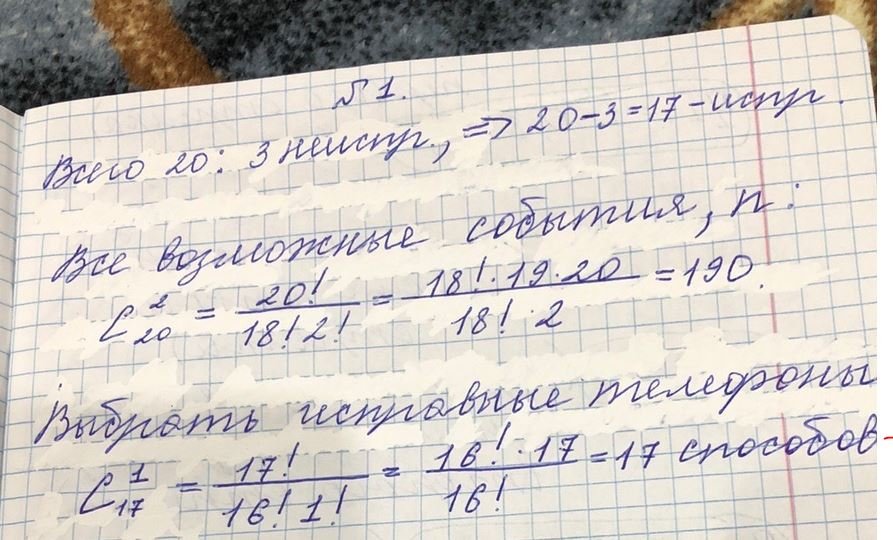 №1.
Всего 20: 3 неиспр., => 20-3=17-испр.
Все возможные события, n:
C²₂₀ = 20!/18!2! = 18!·19·20/18!·2 = 190.
Выбрать исправные телефоны
C¹₁₇ = 17!/16!1! = 16!·17/16! = 17 способов